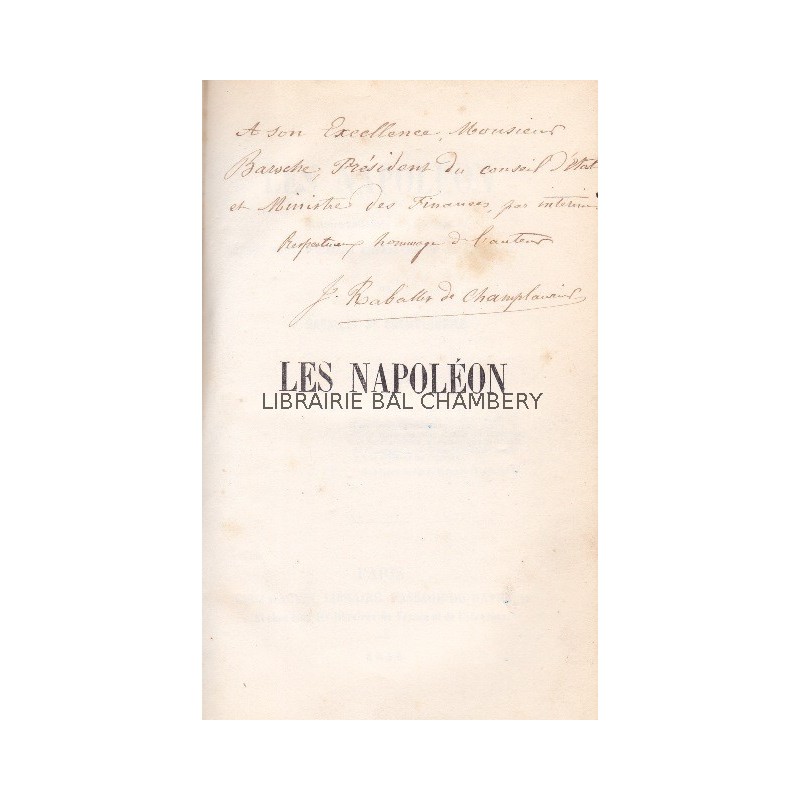 A son Excellence, Monsieur
Baroche, Président du conseil d'état
et Ministre des Finances, par interim
Respectueux hommage de l'auteur
J. de Champlauris
LES NAPOLÉON
LIBRAIRIE BAL CHAMBERY
PARIS